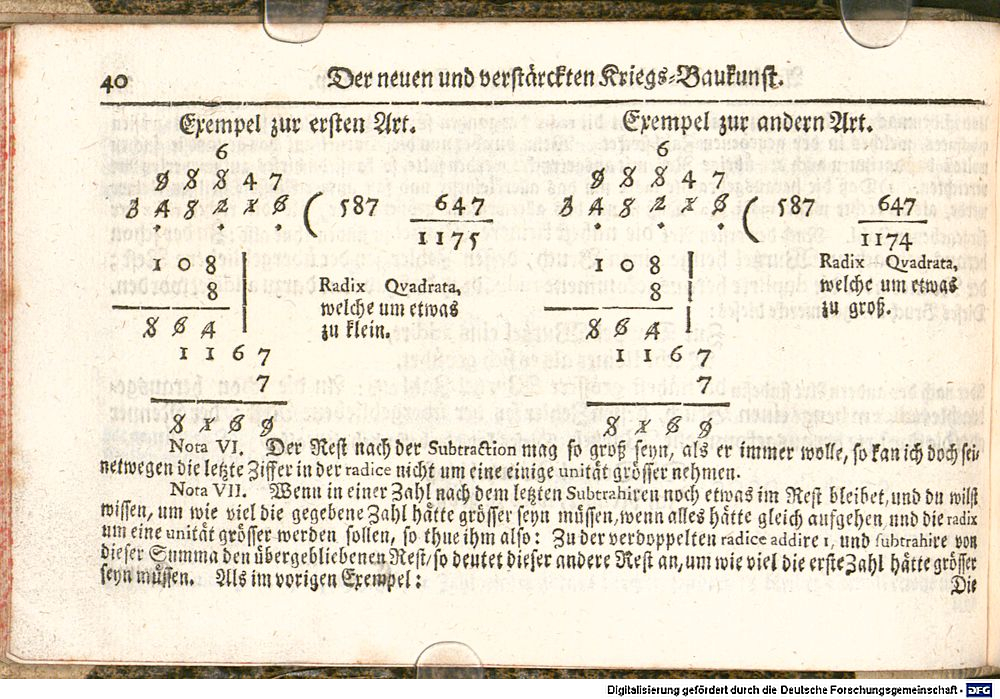 40 Der neuen und verstärckten Kriegs-Baukunst.
Exempel zur ersten Art.
6
9 8 8 4 7
3 4 5 2 1 6 ( 587 647
1175
1 0 8
8
8 6 4
1 1 6 7
7
8 1 6 9
Radix Qvadrata,
welche um etwas
zu klein.
Exempel zur andern Art.
6
9 8 8 4 7
3 4 5 2 1 6 ( 587 647
1174
1 0 8
8
8 6 4
1 1 6 7
7
8 1 6 9
Radix Qvadrata,
welche um etwas
zu groß.
Nota VI. Der Rest nach der Subtraction mag so groß seyn, als er immer wolle, so kan ich doch sei-
netwegen die letzte Ziffer in der radice nicht um eine einige unität grösser nehmen.
Nota VII. Wenn in einer Zahl nach dem letzten Subtrahiren noch etwas im Rest bleibet, und du wilst
wissen, um wie viel die gegebene Zahl hätte grösser seyn müssen, wenn alles hätte gleich aufgehen, und die radix
um eine unität grösser werden sollen, so thue ihm also: Zu der verdoppelten radice addire 1, und subtrahire von
dieser Summa den übergebliebenen Rest/ so deutet dieser andere Rest an, um wie viel die erste Zahl hätte grösser
seyn müssen. Als im vorigen Exempel:
Die
Digitalisierung gefördert durch die Deutsche Forschungsgemeinschaft - DFG